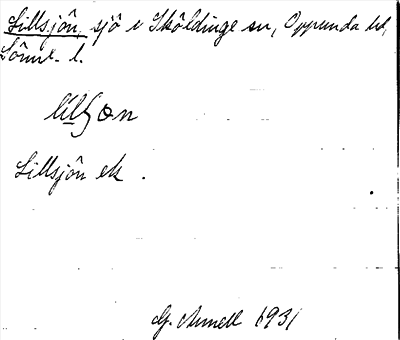 Lillsjön, sjö i Sköldinge sn, Oppunda hd,
Söml. l.
Lillsjön ek.
G. Armell 1931